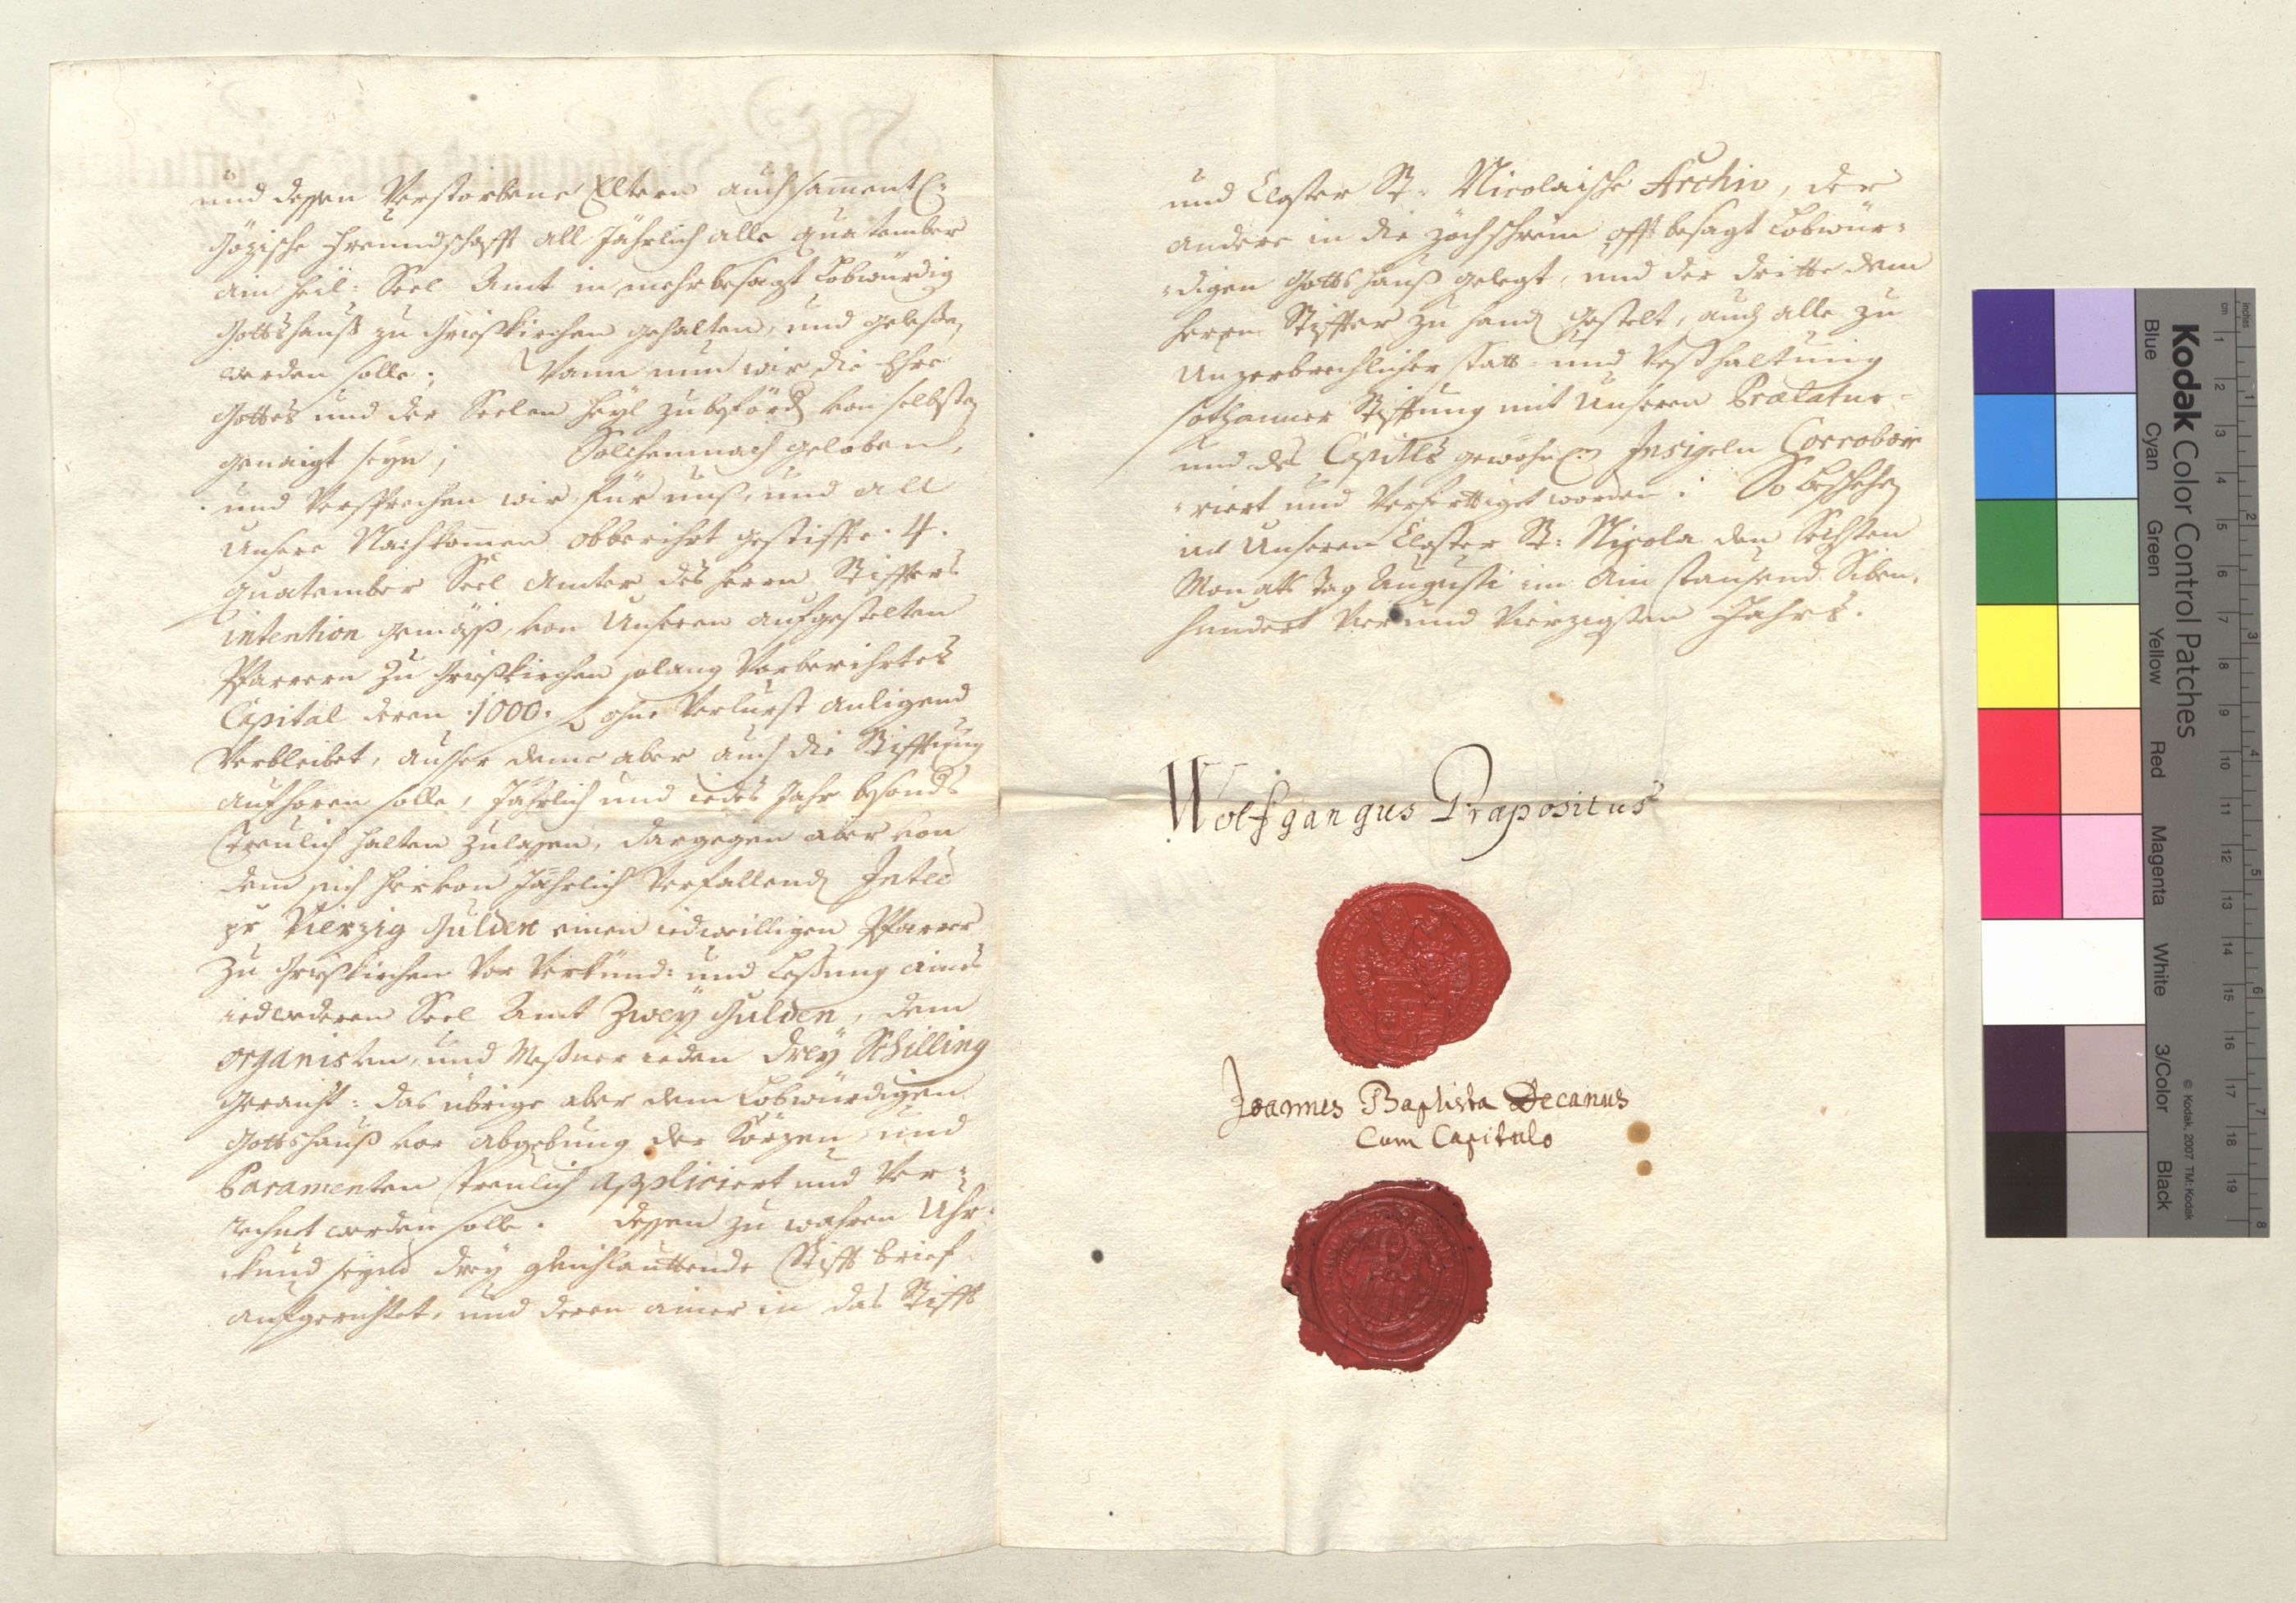 und dessen Verstorbene Eltern auch sament
Freundschafft all Jährlich alle quatember
ain heil: Seel Amt in mehrbesagt Lobwürdig
Gottshauß zu Grießkirchen gehalten, und gelesen
werden solle; Wann nun wir die Ehre
Gottes und der Seelen Heyl zubeförd von selbsten
genaigt seyn; Solchemnach geloben,
und Versprechen wir für unß, und all
Unsere Nachkomen obberihrt gestiffte .4.
quatember Seel Amter des herrn Stiffters
intention gemäß, von Unseren aufgestelten
Pfarrern zu Grießkirchen solang Vorberihrtes
Capital deren .1000. f ohne Verlurst anligend
Verbleibet, ausser deme aber auch die Stifftung
aufhören solle, Jährlich und iedes Jahr besonds
treulich halten zulassen, dargegen aber von
dem sich hievon Jährlich Verfallend Intee
pr Vierzig Gulden einen iedweilligen Pfarrer
zu Grießkirchen vor Verkünd: und Lesung aines
iedwederen Seel Amt Zwey Gulden, dem
organisten, und Meßner ieden drey Schilling
geraicht: das übrige aber dem Lobwürdigen
Gottshauß vor abgebung der Körzen und
Paramenten treulich appliciert und Ver=
rechnet werden solle. dessen zu wahren Uhr=
kund seynd drey gleichlauttende Stifft brief
aufgerichtet, und deren ainer in das Stifft
und Closter St: Nicolaische Archiv, der
andere in die Zöchschrein offt besagt Lobwür=
=digen Gottshauß gelegt, und der dritte dem
herrn Stiffter zu hand gestelt, auch alle zu
Unzerbrechlicher statt= und Vesthaltung
sothanner Stifftung mit Unseren Prælatur=
und des Capitls Insigeln Corrobo
=riert und Verferttiget worden: So beschehen
in Unseren Closter St: Nicola den Sechsten
Monatts Tag Augusti im Ain tausend Siben,
hundert Vier und Vierzigsten Jahrs.
Wolfgangus Præpositus
Joannes Baptista Decanus
Cum Capitulo
Kodak Color Control Patches
Blue Cyan Green Yellow Red Magenta White 3/Color Black
© Kodak, 2007 TM: Kodak
cm 1 2 3 4 5 6 7 8 9 10 11 12 13 14 15 16 17 18 19
inches 1 2 3 4 5 6 7 8